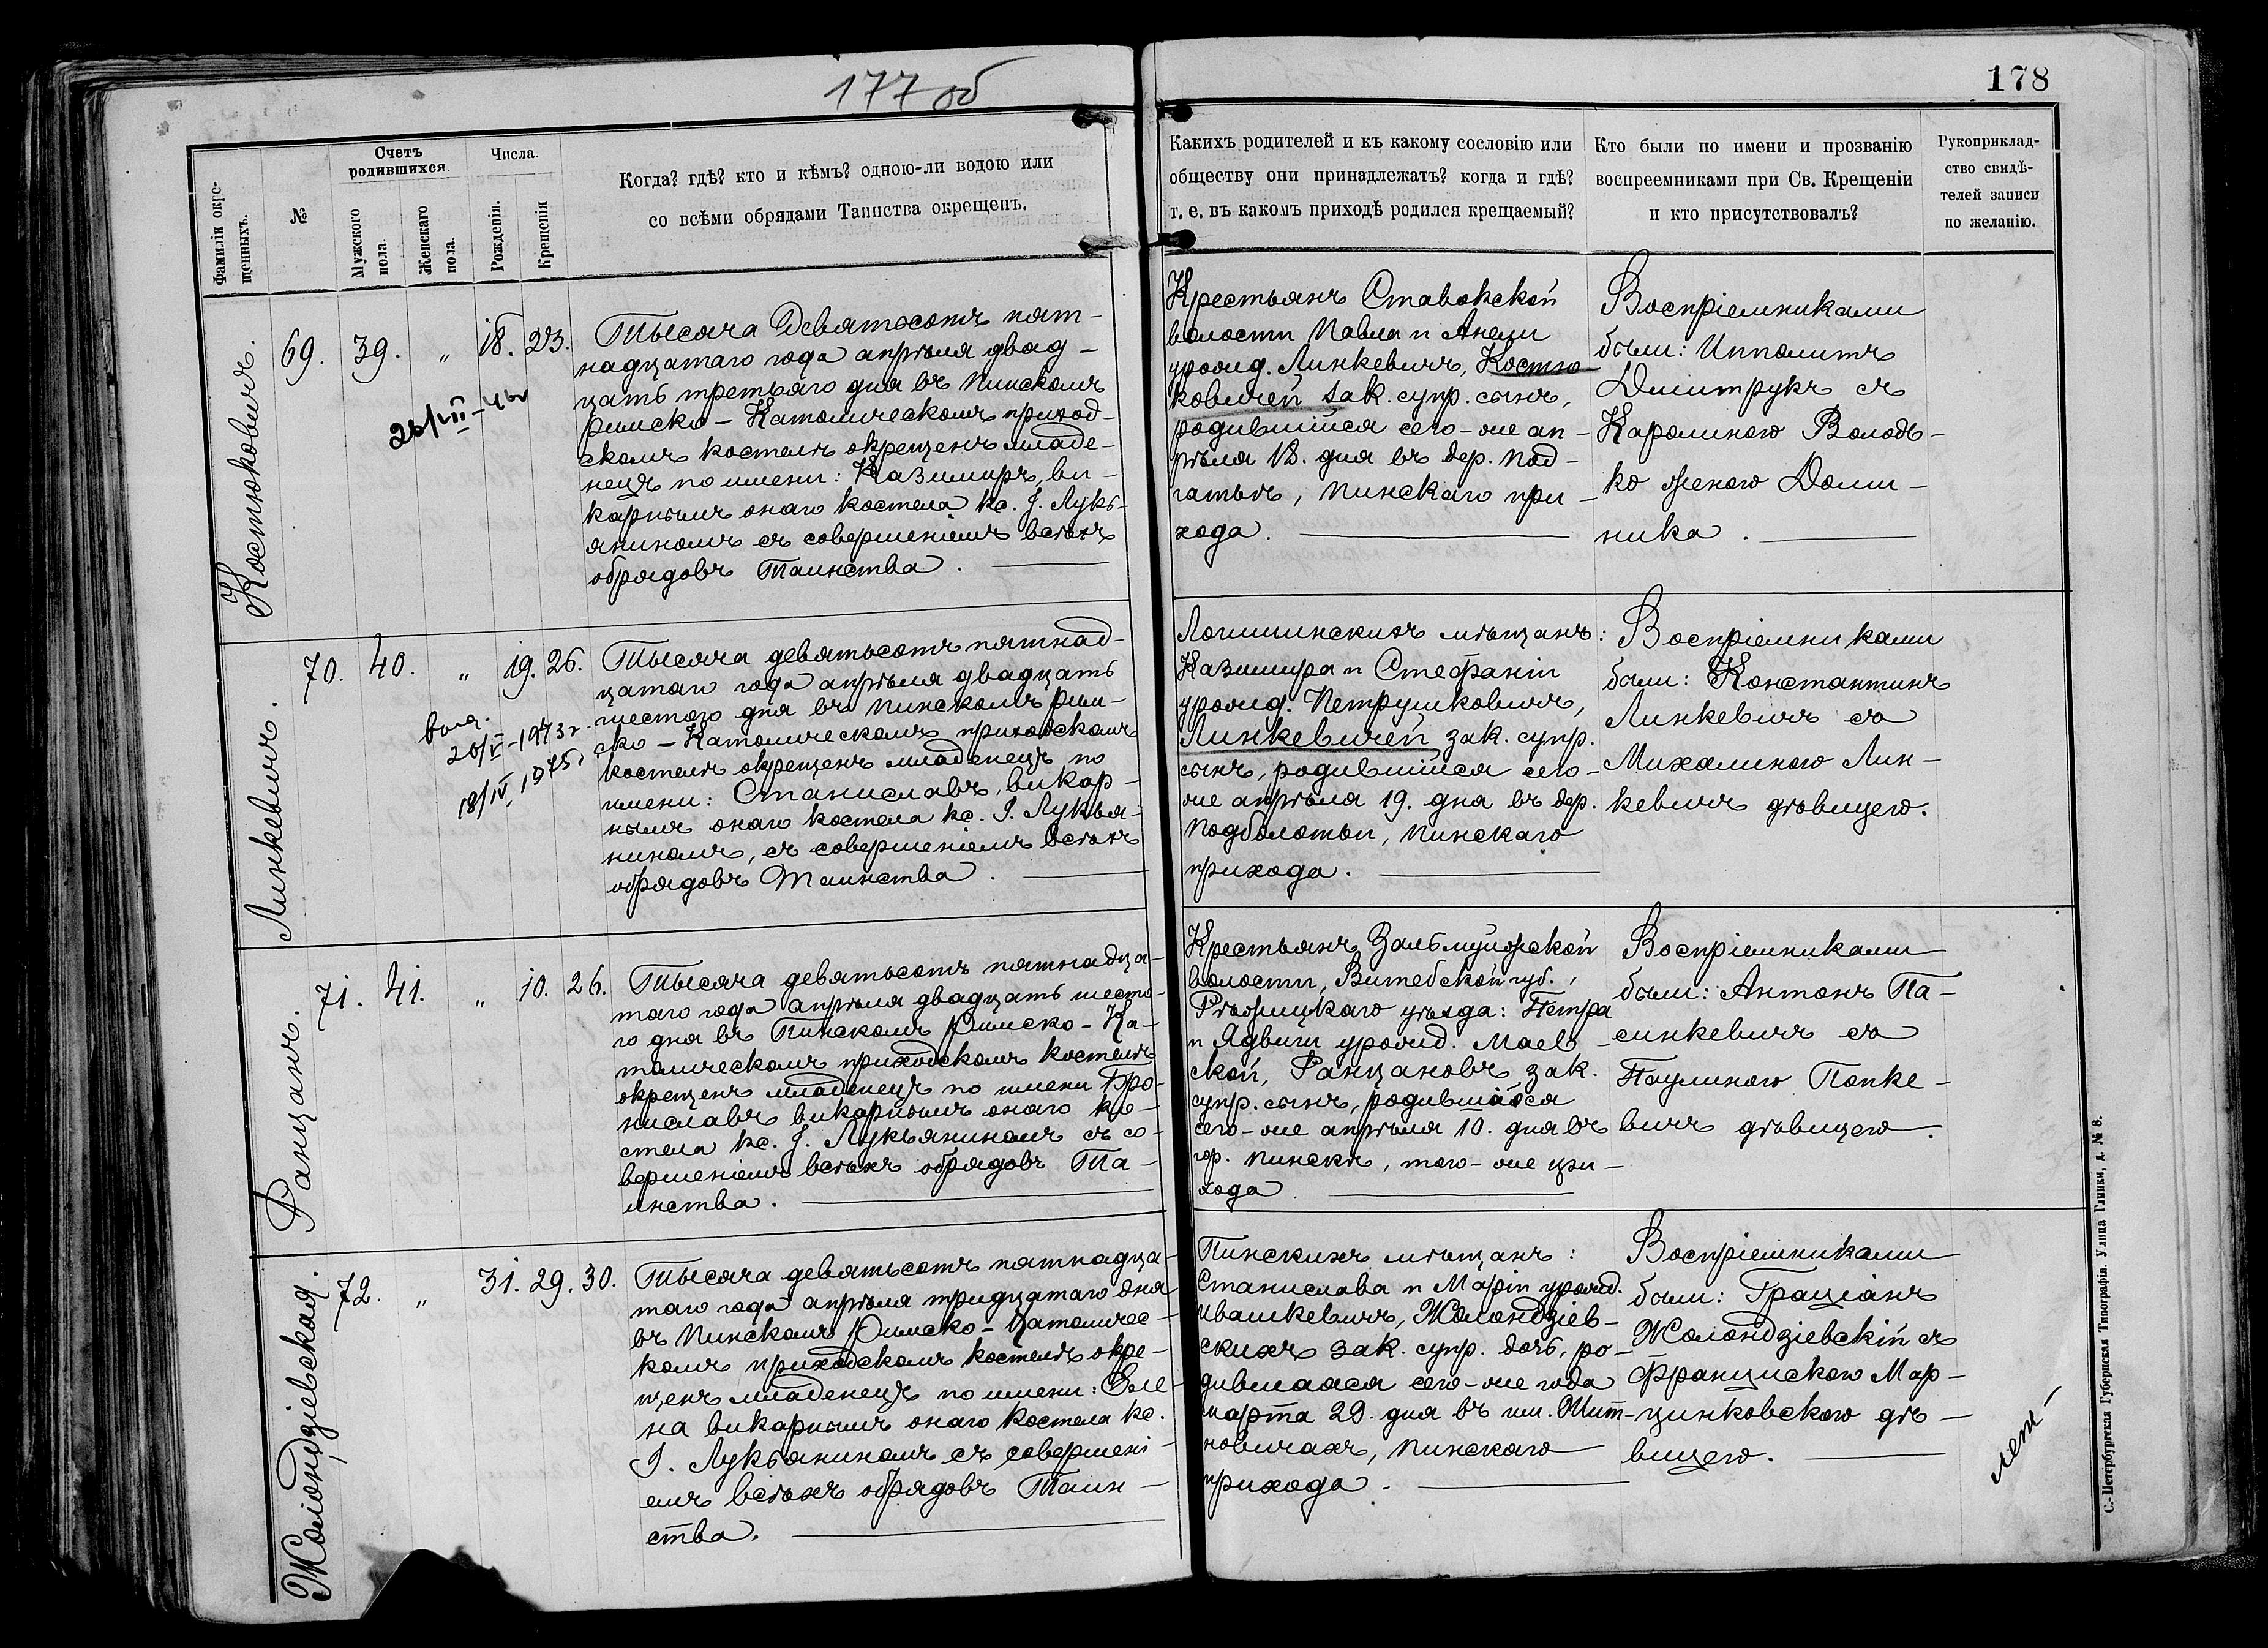 177 об
178
Фамиліи окре-
щенныхъ.
№
Счетъ
родившихся.
Мужского
пола.
Женскаго
пола.
Числа.
Рожденія.
Крещенія
Когда? гдѣ? кто и кѣмъ? одною-ли водою или
со всѣми обрядами Таинства окрещенъ.
Какихъ родителей и къ какому сословію или
обществу они принадлежатъ? когда и гдѣ?
т. е. въ какомъ приходѣ родился крещаемый?
Кто были по имени и прозванію
воспреемниками при Св. Крещеніи
и кто присутствовалъ?
Рукоприклад-
ство свидѣ-
телей записи
по желанію.
Костюковичъ.
69. 39. „ 18. 23.
Тысяча Девятосотъ пят-
надцатаго года апрѣля двад-
цать третьяго дня въ Пинскомъ
римско-Католическомъ приход-
скомъ костелѣ окрещенъ младе-
нецъ по имени: Казимиръ, ви-
карнымъ онаго костела кс. J. Лукь-
яниномъ съ совершеніемъ всѣхъ
обрядовъ Таинства.
Крестьянъ Ставокской
волости Павла и Анели
урожд. Линкевичъ, Костю
ковичей зак. супр. сынъ,
родившійся сего-же ап-
рѣля 18. дня въ дер. Под-
гатьѣ, Пинскаго при-
хода.
Воспріемниками
были: Ипполитъ
Дмитрукъ съ
Каролиною Володь-
ко женою Доми-
ника.
Линкевичъ.
70. 40. „ 19. 26.
выд.
20/V-1973г.
18/IV 1975г
Тысяча девятьсотъ пятнад-
цатаго года апрѣля двадцать
шестого дня въ Пинскомъ рим-
ско-Католическомъ приходскомъ
костелѣ окрещенъ младенецъ по
имени: Станиславъ, викар-
нымъ онаго костела кс. J. Лукья-
ниномъ, съ совершеніемъ всѣхъ
обрядовъ Таинства.
Логишинскихъ мѣщанъ:
Казимира и Стефаніи
урожд. Петрушковичъ,
Линкевичей зак. супр.
сынъ, родившійся сего-
же апрѣля 19. дня въ дер.
Подболотьи, Пинскаго
прихода.
Воспріемниками
были: Константинъ
Линкевичъ съ
Михалиною Лин-
кевичъ дѣвицею.
Ранцанъ.
71. 41. „ 10. 26.
Тысяча девятьсотъ пятнадца-
таго года апрѣля двадцать шесто-
го дня въ Пинскомъ Римско-Ка-
толическомъ приходскомъ костелѣ
окрещенъ младенецъ по имени Бро-
ниславъ викарнымъ онаго ко-
стела кс. J. Лукьяниномъ съ со-
вершеніемъ всѣхъ обрядовъ Та-
инства.
Крестьянъ Зальмуйжской
волости, Витебской губ.,
Рѣжицкаго уѣзда: Петра
и Ядвиги урожд. Маев-
ской, Ранцановъ, зак.
супр. сынъ, родившійся
сего-же апрѣля 10. дня въ
гор. Пинскѣ, того-же при-
хода.
Воспріемниками
были: Антонъ Па-
синкевичъ съ
Паулиною Попке-
вичъ дѣвицею.
Жолондзіевская.
72. „ 31. 29. 30.
Тысяча девятьсотъ пятнадца-
таго года апрѣля тридцатаго дня
въ Пинскомъ Римско-Католичес-
комъ приходскомъ костелѣ окре-
щенъ младенецъ по имени: Еле-
на викарнымъ онаго костела кс.
J. Лукьяниномъ съ совершені-
емъ всѣхъ обрядовъ Таин-
ства.
Пинскихъ мѣщанъ:
Станислава и Маріи урожд.
Ивашкевичъ, Жолондзіев-
скихъ зак. супр. дочь, ро-
дившаяся сего-же года
марта 29. дня въ им. Жит-
новичахъ, Пинскаго
прихода.
Воспріемниками
были: Граціанъ
Жолондзіевскій съ
Францискою Мар-
цинковскою дѣ-
вицею.
С.-Петербургская Губернская Типографія. Улица Глинки, д. № 8.